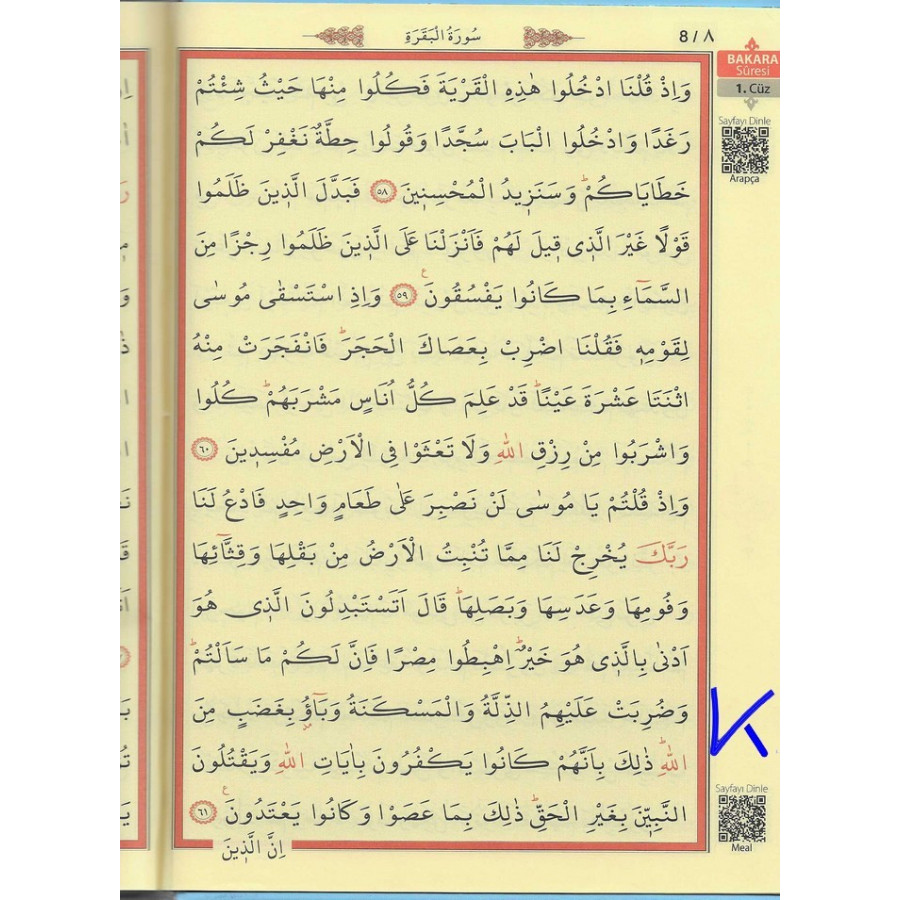 سُورَةُ الْبَقَرَةِ
8 / ٨
BAKARA
Sûresi
1. Cüz
Sayfayı Dinle
Arapça
وَاِذْ قُلْنَا ادْخُلُوا هٰذِهِ الْقَرْيَةَ فَكُلُوا مِنْهَا حَيْثُ شِئْتُمْ
رَغَدًا وَادْخُلُوا الْبَابَ سُجَّدًا وَقُولُوا حِطَّةٌ نَغْفِرْ لَكُمْ
خَطَايَاكُمْۜ وَسَنَز۪يدُ الْمُحْسِن۪ينَ ﴿٥٨﴾ فَبَدَّلَ الَّذ۪ينَ ظَلَمُوا
قَوْلًا غَيْرَ الَّذ۪ي ق۪يلَ لَهُمْ فَاَنْزَلْنَا عَلَى الَّذ۪ينَ ظَلَمُوا رِجْزًا مِنَ
السَّمَٓاءِ بِمَا كَانُوا يَفْسُقُونَ۟ ﴿٥٩﴾ وَاِذِ اسْتَسْقٰى مُوسٰى
لِقَوْمِه۪ فَقُلْنَا اضْرِبْ بِعَصَاكَ الْحَجَرَۜ فَانْفَجَرَتْ مِنْهُ
اثْنَتَا عَشْرَةَ عَيْنًاۜ قَدْ عَلِمَ كُلُّ اُنَاسٍ مَشْرَبَهُمْۜ كُلُوا
وَاشْرَبُوا مِنْ رِزْقِ اللّٰهِ وَلَا تَعْثَوْا فِي الْاَرْضِ مُفْسِد۪ينَ ﴿٦٠﴾
وَاِذْ قُلْتُمْ يَا مُوسٰى لَنْ نَصْبِرَ عَلٰى طَعَامٍ وَاحِدٍ فَادْعُ لَنَا
رَبَّكَ يُخْرِجْ لَنَا مِمَّا تُنْبِتُ الْاَرْضُ مِنْ بَقْلِهَا وَقِثَّٓائِهَا
وَفُومِهَا وَعَدَسِهَا وَبَصَلِهَاۜ قَالَ اَتَسْتَبْدِلُونَ الَّذ۪ي هُوَ
اَدْنٰى بِالَّذ۪ي هُوَ خَيْرٌۜ اِهْبِطُوا مِصْرًا فَاِنَّ لَكُمْ مَا سَاَلْتُمْۜ
وَضُرِبَتْ عَلَيْهِمُ الذِّلَّةُ وَالْمَسْكَنَةُ وَبَٓاؤُ۫ بِغَضَبٍ مِنَ
اللّٰهِۜ ذٰلِكَ بِاَنَّهُمْ كَانُوا يَكْفُرُونَ بِاٰيَاتِ اللّٰهِ وَيَقْتُلُونَ
النَّبِيّ۪نَ بِغَيْرِ الْحَقِّۜ ذٰلِكَ بِمَا عَصَوْا وَكَانُوا يَعْتَدُونَ۟ ﴿٦١﴾
اِنَّ الَّذ۪ينَ
Sayfayı Dinle
Meal